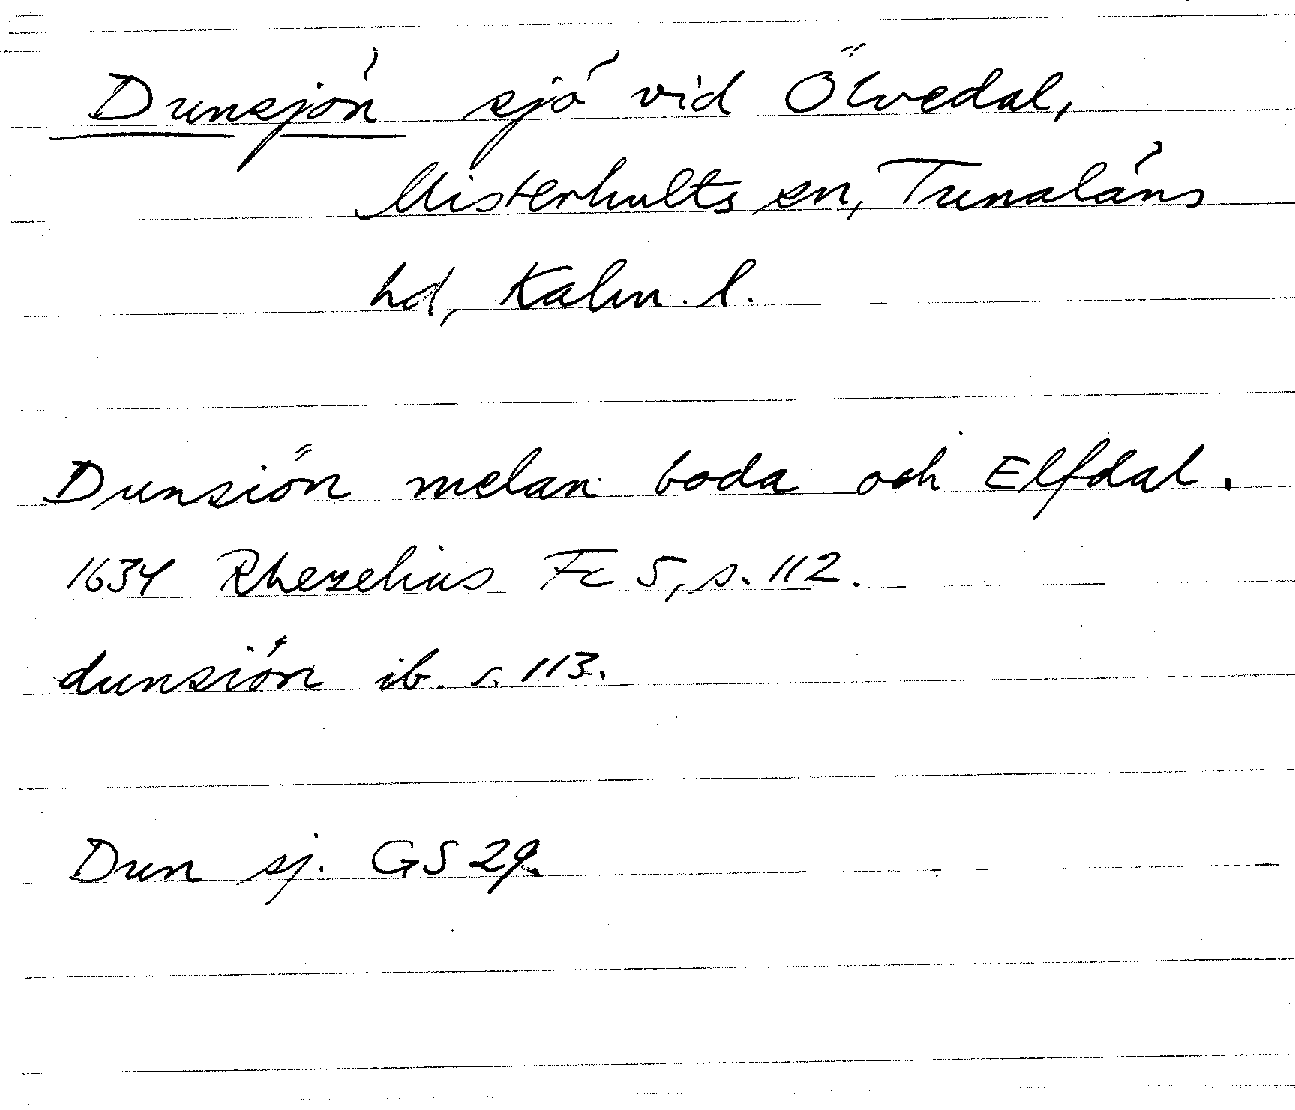 Dunsjön sjö vid Ölvedal,
Misterhults sn, Tunaläns
hd, Kalm. l.
Dunsiön melan boda och Elfdal.
1634 Rhezelius Fc 5, s. 112.
dunsiön ib s. 113.
Dun sj. GS 29.